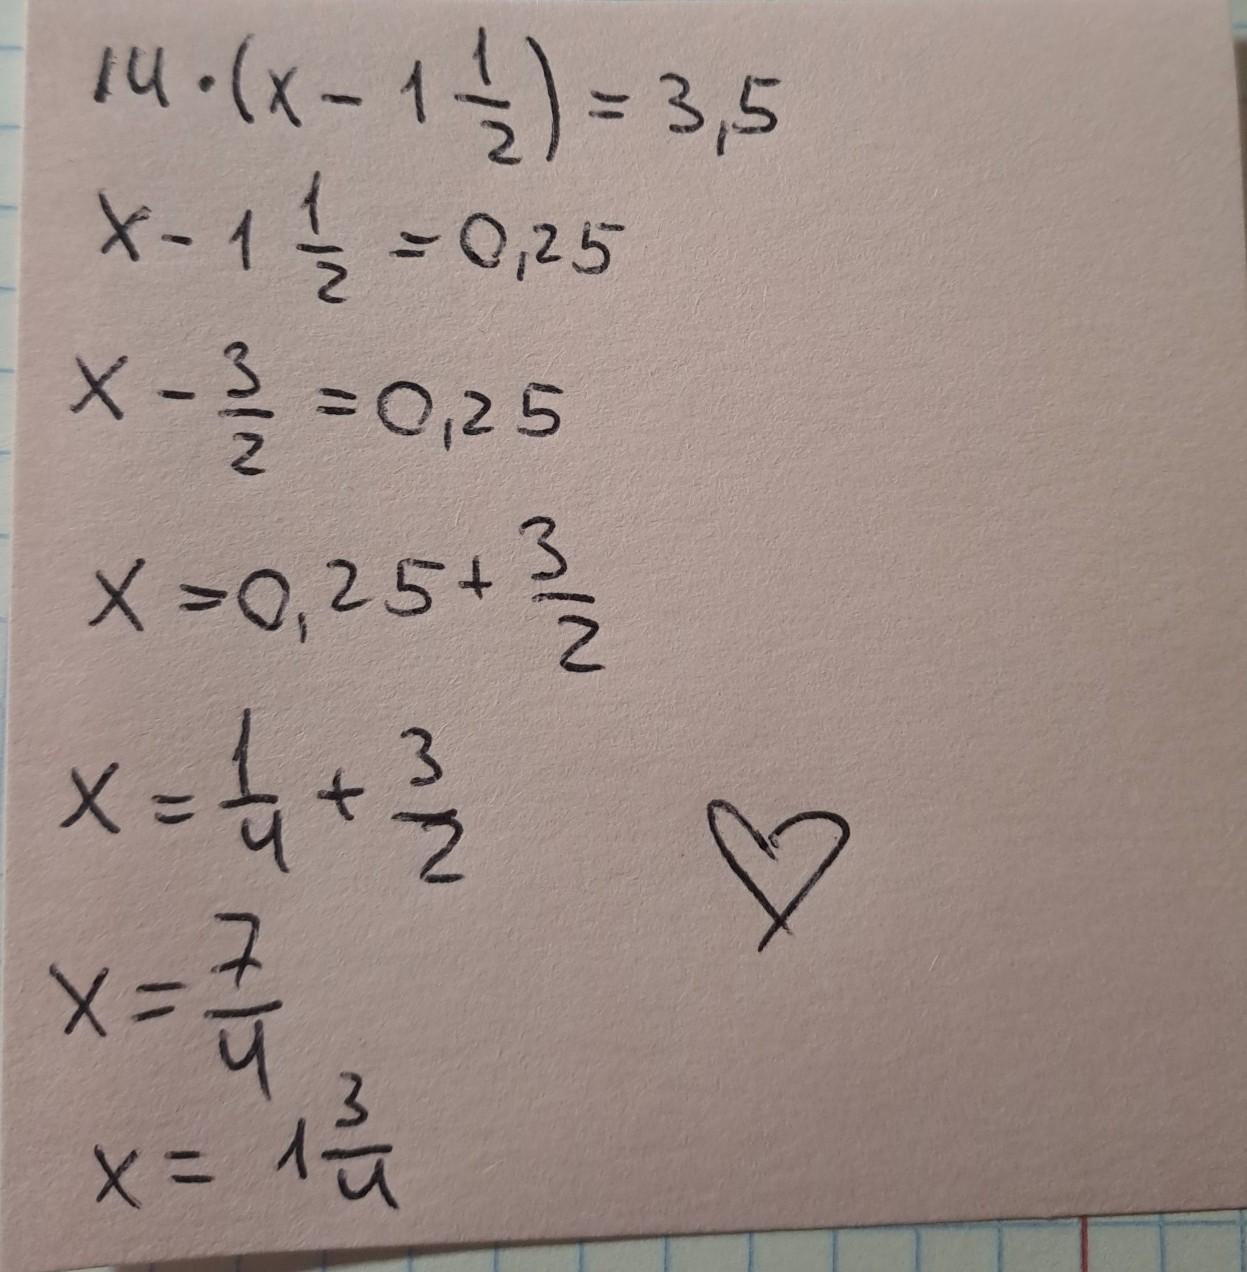 14 · (x - 1 1/2) = 3,5
x - 1 1/2 = 0,25
x - 3/2 = 0,25
x = 0,25 + 3/2
x = 1/4 + 3/2
x = 7/4
x = 1 3/4